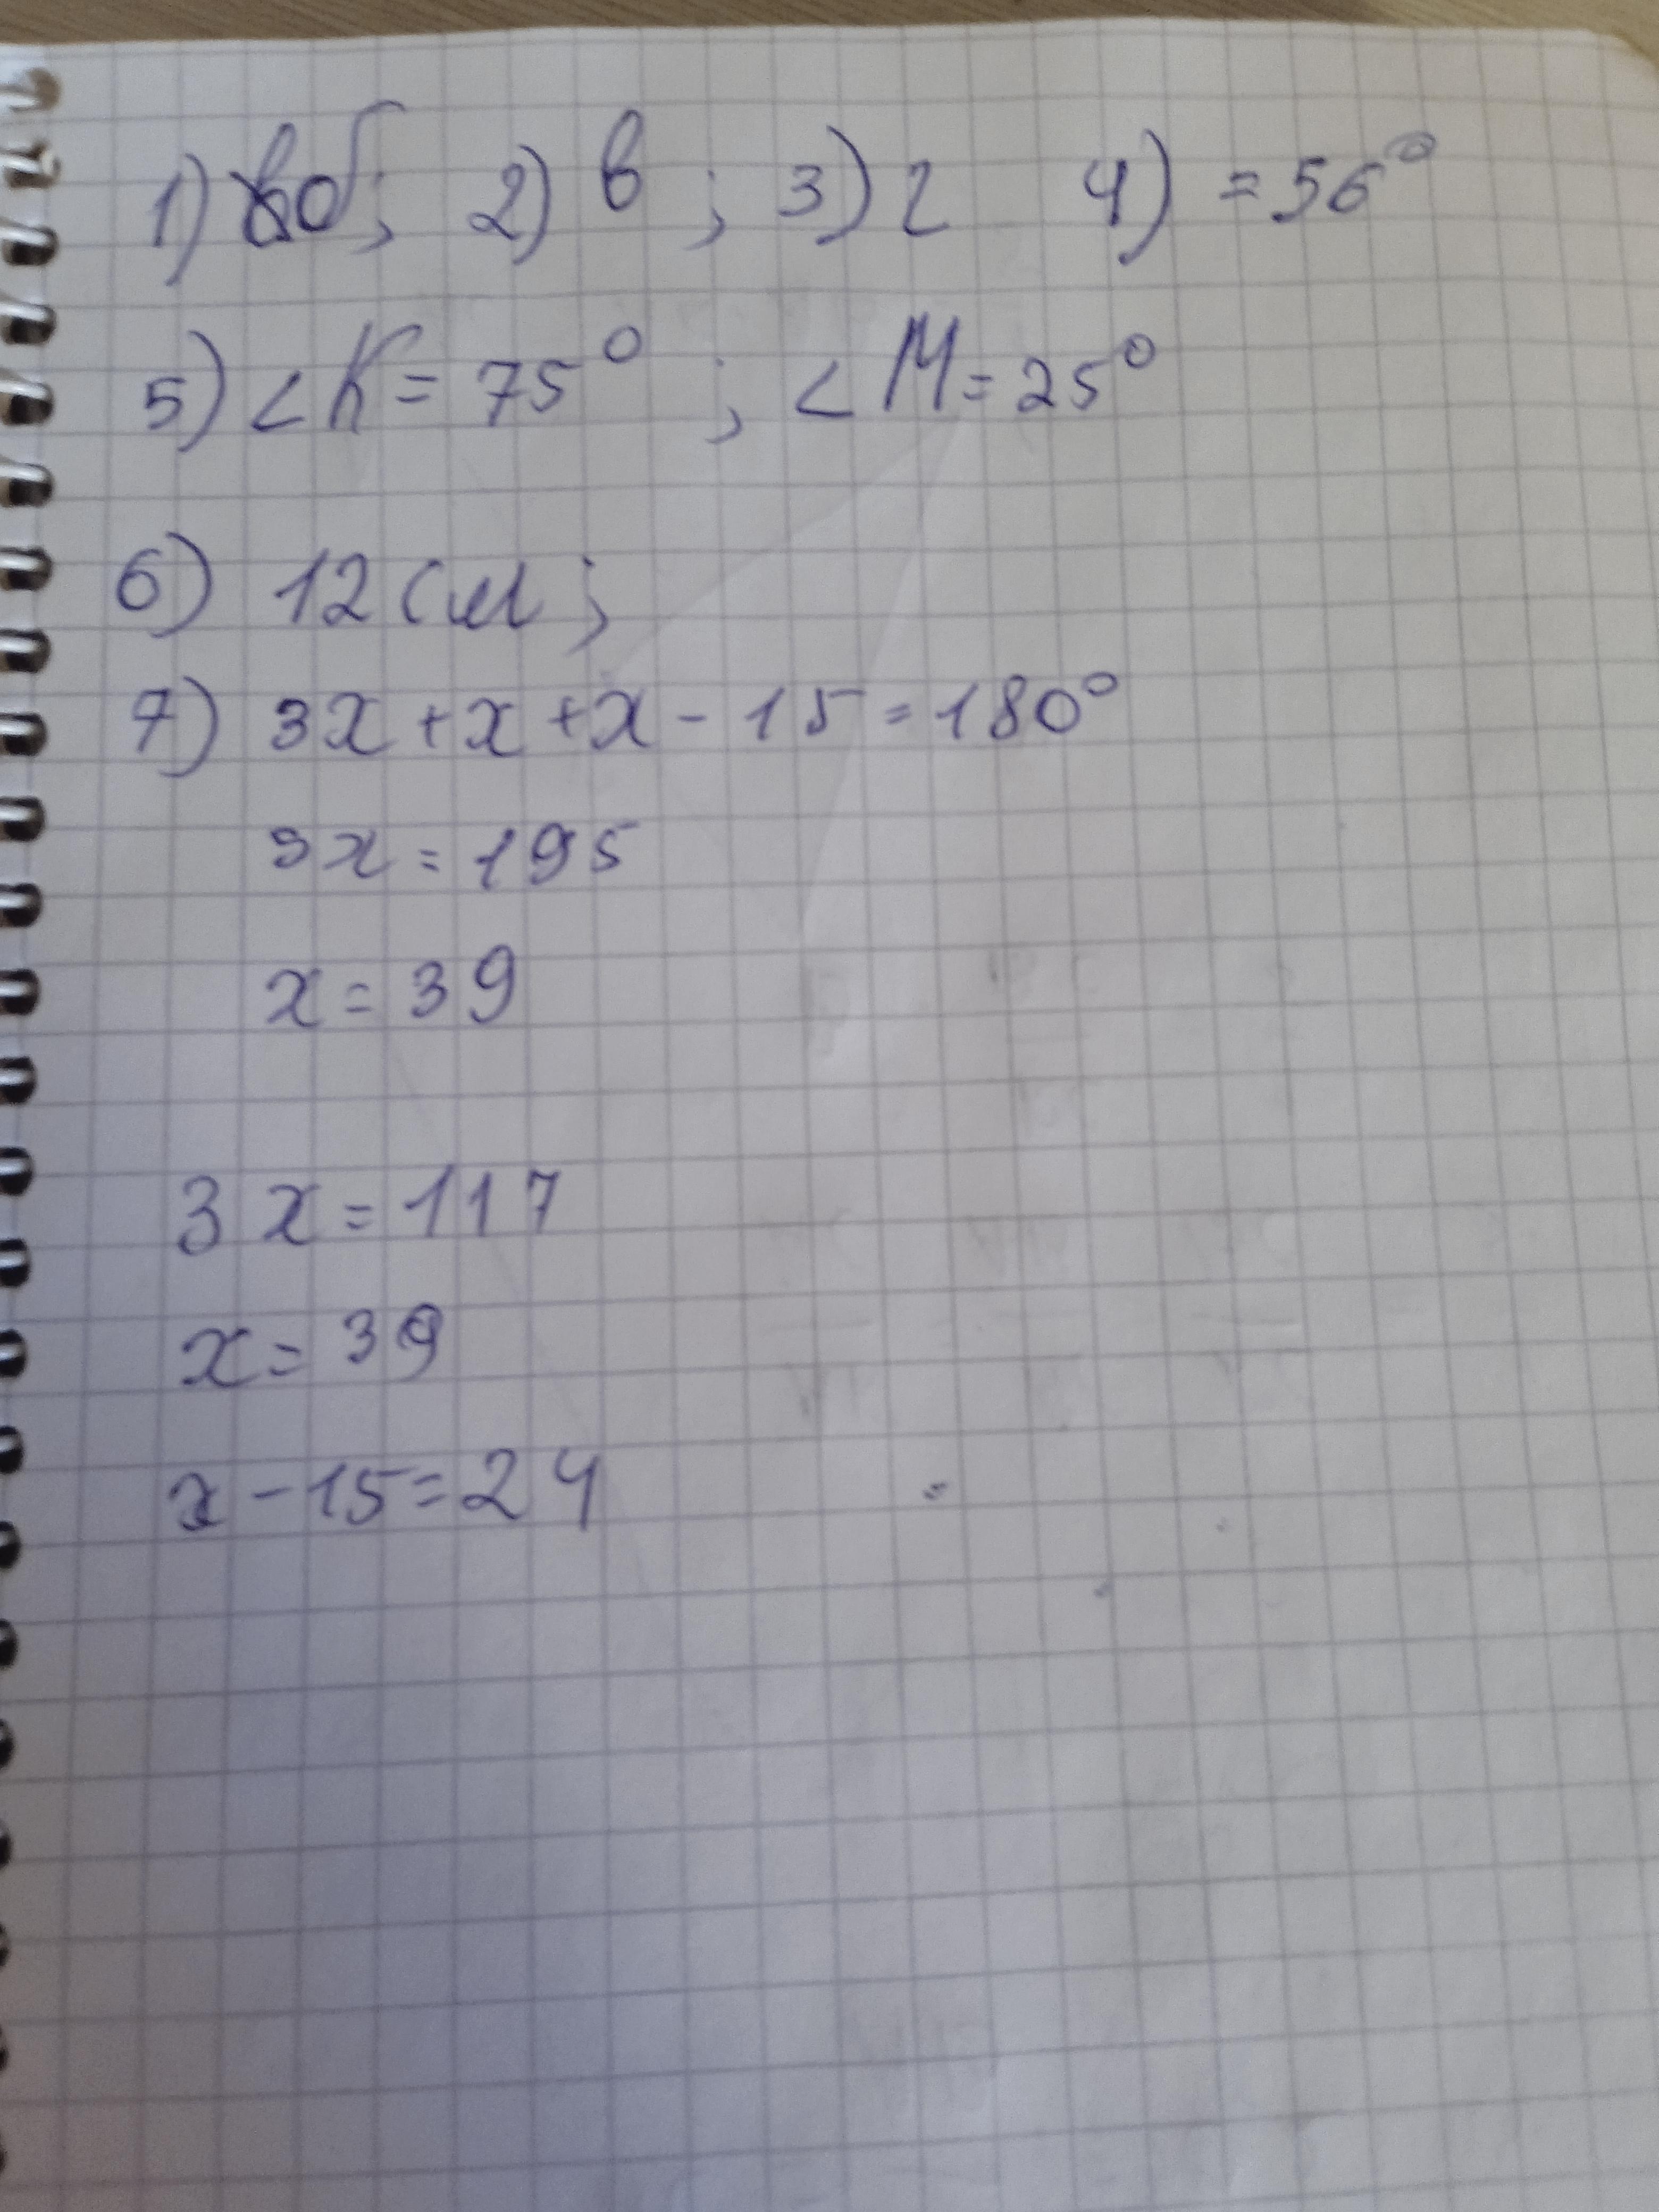 1) б; 2) в; 3) г 4) = 56°
5) ∠K = 75°; ∠M = 25°
6) 12 см;
7) 3x + x + x - 15 = 180°
5x = 195
x = 39
3x = 117
x = 39
x - 15 = 24